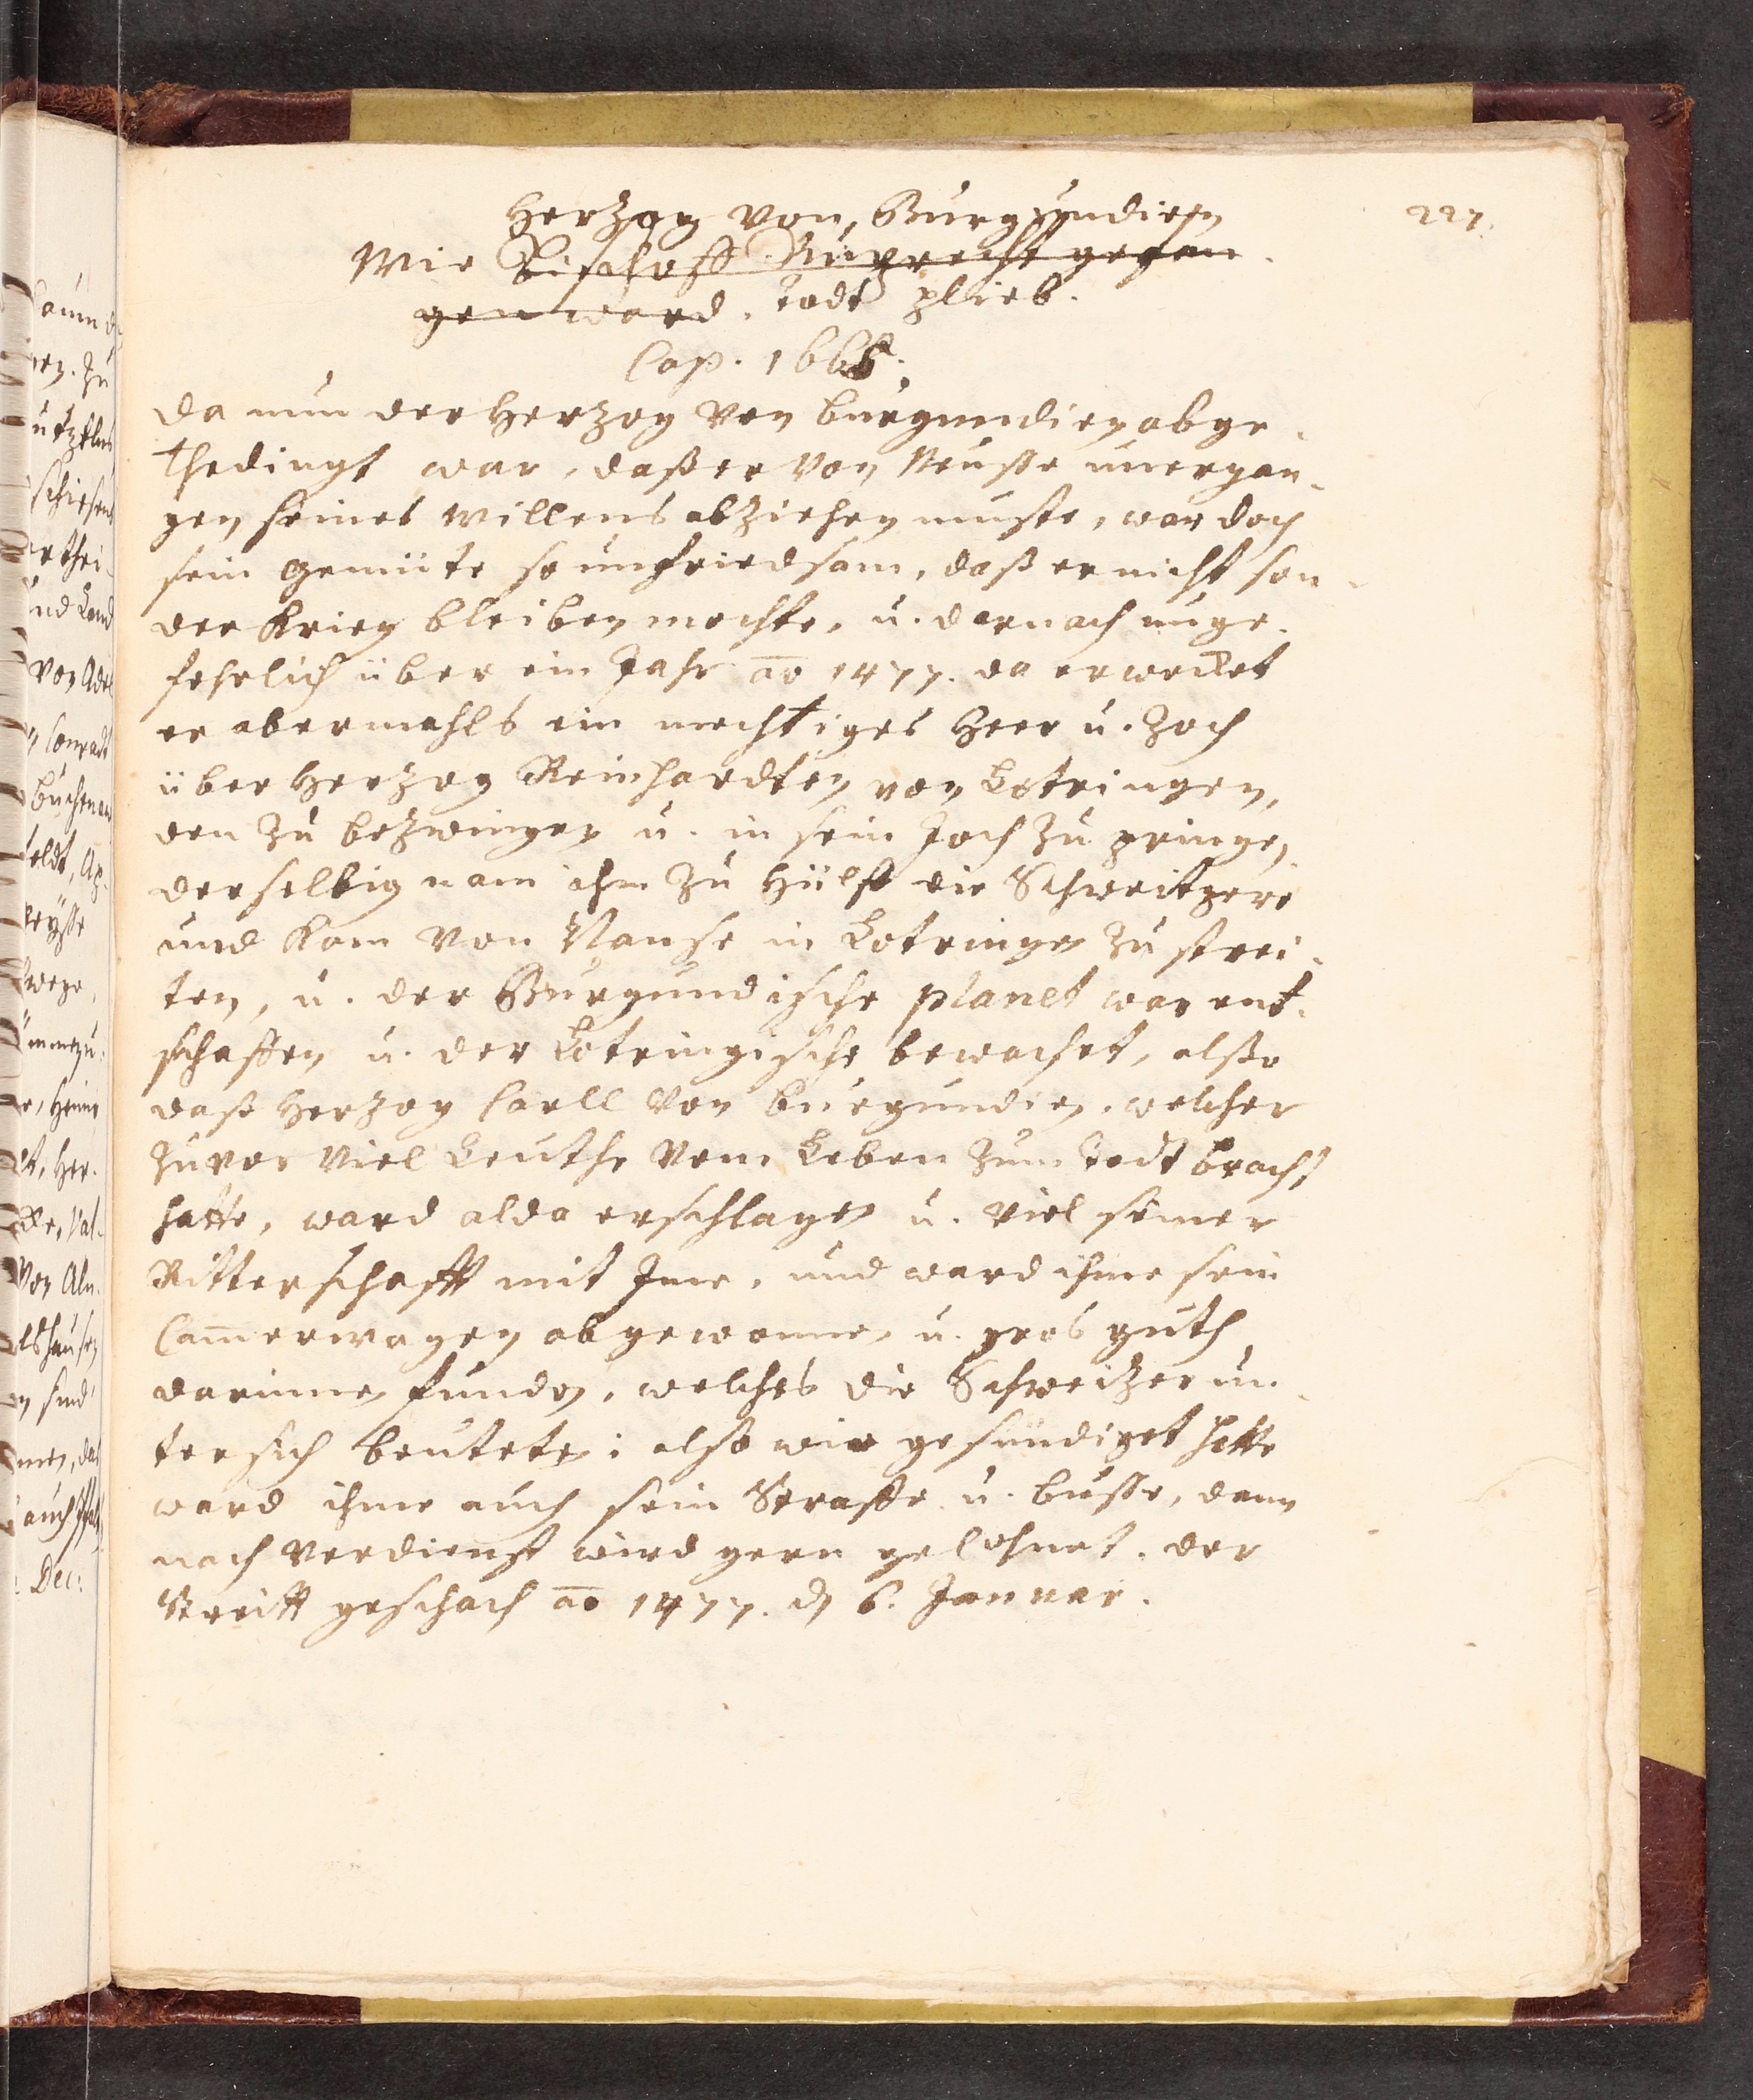 227.
Herzog von Burgundien
Wie Bischoff Ruprecht gefan-
gen ward. todt plieb.
Cap. 1666.
Da nun der Herzog von Burgundien abge-
thedingt war, daß er von Neusse unergan-
gen seines willens abziehen muste, war doch
sein gemüte so unfriedsam, daß er nicht son-
der Krieg bleiben mochte, u. darnach unge-
fehrlich über ein Jahr ao 1477. da erwecket
er abermahls ein mechtiges Heer u. zoch
über Herzog Reinhardten von Lotringen,
den zu bezwingen u. in sein Joch zu pringen
derselbig nam ihm zu Hülff die Schweitzere
und kam von Nanse in Lotringen zu strei-
ten, u. der Burgundische planet war ent-
schaffen u. der Lotringische bewachet, also
daß Herzog Carll von Burgundien, welcher
zuvor viel Leuthe vom Leben zum todt bracht
hatte, ward alda erschlagen u. viel seiner
Ritterschafft mit Ime, und ward ihme sein
Camerwagen abgewonnen u. gros guth
darinnen funden, welches die Schweitzer un-
ter sich beuteten: also wie gesündiget hette
ward ihme auch sein Straffe u. Busse, dann
nach verdienst wird gern gelohnet. der
Streitt geschach ao 1477. d 6. Januar.
saum
zu
schiesen
erthei-
und Land
von Adel
Conradt
Buchenau
feldt,
Heinr
Her.
Val-
von
lshausen
sind
auch
Dec: